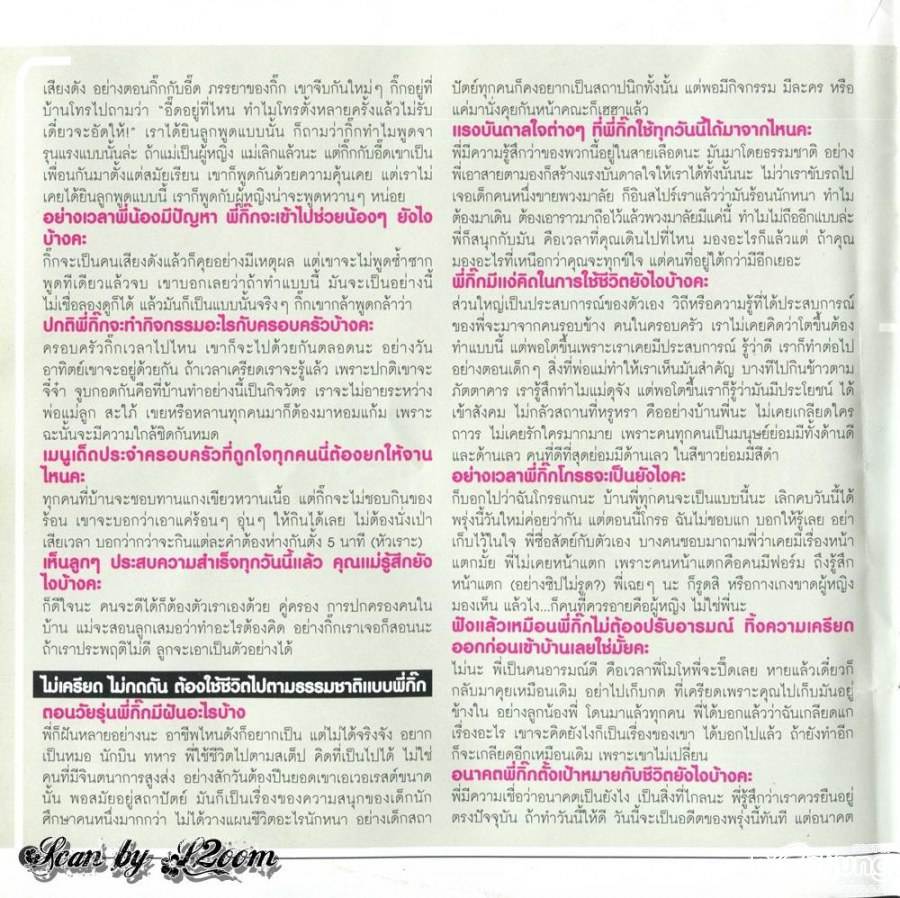 เสียงดัง อย่างตอนกิ๊กกับอี๊ด ภรรยาของกิ๊ก เขาจีบกันใหม่ๆ กิ๊กอยู่ที่
บ้านโทรไปถามว่า "อี๊ดอยู่ที่ไหน ทำไมโทรตั้งหลายครั้งแล้วไม่รับ
เดี๋ยวจะอัดให้!" เราได้ยินลูกพูดแบบนั้น ก็ถามว่ากิ๊กทำไมพูดจา
รุนแรงแบบนั้นล่ะ ถ้าแม่เป็นผู้หญิง แม่เลิกแล้วนะ แต่กิ๊กกับอี๊ดเขาเป็น
เพื่อนกันมาตั้งแต่สมัยเรียน เขาก็พูดกันด้วยความคุ้นเคย แต่เราไม่
เคยได้ยินลูกพูดแบบนี้ เราก็พูดกับผู้หญิงน่าจะพูดหวานๆ หน่อย
อย่างเวลาพี่น้องมีปัญหา พี่กิ๊กจะเข้าไปช่วยน้องๆ ยังไง
บ้างคะ
กิ๊กจะเป็นคนเสียงดังแล้วก็คุยอย่างมีเหตุผล แต่เขาจะไม่พูดซ้ำซาก
พูดทีเดียวแล้วจบ เขาบอกเลยว่าถ้าทำแบบนี้ มันจะเป็นอย่างนี้
ไม่เชื่อลองดูก็ได้ แล้วมันก็เป็นแบบนั้นจริงๆ กิ๊กเขากล้าพูดกล้าว่า
ปกติพี่กิ๊กจะทำกิจกรรมอะไรกับครอบครัวบ้างคะ
ครอบครัวกิ๊กเวลาไปไหน เขาก็จะไปด้วยกันตลอดนะ อย่างวัน
อาทิตย์เขาจะอยู่ด้วยกัน ถ้าเวลาเครียดเราจะรู้แล้ว เพราะปกติเขาจะ
จี๋จ๋า จูบกอดกันคือที่บ้านทำอย่างนี้เป็นกิจวัตร เราจะไม่อายระหว่าง
พ่อแม่ลูก สะใภ้ เขยหรือหลานทุกคนมาก็ต้องมาหอมแก้ม เพราะ
ฉะนั้นจะมีความใกล้ชิดกันหมด
เมนูเด็ดประจำครอบครัวที่ถูกใจทุกคนนี่ต้องยกให้จาน
ไหนคะ
ทุกคนที่บ้านจะชอบทานแกงเขียวหวานเนื้อ แต่กิ๊กจะไม่ชอบกินของ
ร้อน เขาจะบอกว่าเอาแค่ร้อนๆ อุ่นๆ ให้กินได้เลย ไม่ต้องนั่งเป่า
เสียเวลา บอกว่ากว่าจะกินแต่ละคำต้องห่างกันตั้ง 5 นาที (หัวเราะ)
เห็นลูกๆ ประสบความสำเร็จทุกวันนี้แล้ว คุณแม่รู้สึกยัง
ไงบ้างคะ
ก็ดีใจนะ คนจะดีได้ก็ต้องตัวเราเองด้วย คู่ครอง การปกครองคนใน
บ้าน แม่จะสอนลูกเสมอว่าทำอะไรต้องคิด อย่างกิ๊กเราเจอก็สอนนะ
ถ้าเราประพฤติไม่ดี ลูกจะเอาเป็นตัวอย่างได้
ไม่เครียด ไม่กดดัน ต้องใช้ชีวิตไปตามธรรมชาติแบบพี่กิ๊ก
ตอนวัยรุ่นพี่กิ๊กมีฝันอะไรบ้าง
พี่ก็ฝันหลายอย่างนะ อาชีพไหนดังก็อยากเป็น แต่ไม่ได้จริงจัง อยาก
เป็นหมอ นักบิน ทหาร พี่ใช้ชีวิตไปตามสเต็ป คิดที่เป็นไปได้ ไม่ใช่
คนที่มีจินตนาการสูงส่ง อย่างสักวันต้องปีนยอดเขาเอเวอเรสต์ขนาด
นั้น พอสมัยอยู่สถาปัตย์ มันก็เป็นเรื่องของความสนุกของเด็กนัก
ศึกษาคนหนึ่งมากกว่า ไม่ได้วางแผนชีวิตอะไรนักหนา อย่างเด็กสถา
ปัตย์ทุกคนก็คงอยากเป็นสถาปนิกทั้งนั้น แต่พอมีกิจกรรม มีละคร หรือ
แค่มานั่งคุยกันหน้าคณะก็เฮฮาแล้ว
แรงบันดาลใจต่างๆ ที่พี่กิ๊กใช้ทุกวันนี้ได้มาจากไหนคะ
พี่มีความรู้สึกว่าของพวกนี้อยู่ในสายเลือดนะ มันมาโดยธรรมชาติ อย่าง
พี่เอาสายตามองก็สร้างแรงบันดาลใจให้เราได้ทั้งนั้นนะ ไม่ว่าเราขับรถไป
เจอเด็กคนหนึ่งขายพวงมาลัย ก็อินสไปร์เราแล้วว่ามันร้อนนักหนา ทำไม
ต้องมาเดิน ต้องเอาราวมาถือไว้แล้วพวงมาลัยมีแค่นี้ ทำไมไม่ถืออีกแบบล่ะ
พี่ก็สนุกกับมัน คือเวลาที่คุณเดินไปที่ไหน มองอะไรก็แล้วแต่ ถ้าคุณ
มองอะไรที่เหนือกว่าคุณจะทุกข์ใจ แต่คนที่อยู่ใต้กว่ามีอีกเยอะ
พี่กิ๊กมีแง่คิดในการใช้ชีวิตยังไงบ้างคะ
ส่วนใหญ่เป็นประสบการณ์ของตัวเอง วิถีหรือความรู้ที่ได้ประสบการณ์
ของพี่จะมาจากคนรอบข้าง คนในครอบครัว เราไม่เคยคิดว่าโตขึ้นต้อง
ทำแบบนี้ แต่พอโตขึ้นเพราะเราเคยมีประสบการณ์ รู้ว่าดี เราก็ทำต่อไป
อย่างตอนเด็กๆ สิ่งที่พ่อแม่ทำให้เราเห็นมันสำคัญ บางทีไปกินข้าวตาม
ภัตตาคาร เรารู้สึกทำไมแม่ดุจัง แต่พอโตขึ้นเราก็รู้ว่ามันมีประโยชน์ ได้
เข้าสังคม ไม่กลัวสถานที่หรูหรา คืออย่างบ้านพี่นะ ไม่เคยเกลียดใคร
ถาวร ไม่เคยรักใครมากมาย เพราะคนทุกคนเป็นมนุษย์ย่อมมีทั้งด้านดี
และด้านเลว คนที่ดีที่สุดย่อมมีด้านเลว ในสีขาวย่อมมีสีดำ
อย่างเวลาพี่กิ๊กโกรธจะเป็นยังไงคะ
ก็บอกไปว่าฉันโกรธแกนะ บ้านพี่ทุกคนจะเป็นแบบนี้นะ เลิกคบวันนี้ได้
พรุ่งนี้วันใหม่ค่อยว่ากัน แต่ตอนนี้โกรธ ฉันไม่ชอบแก บอกให้รู้เลย อย่า
เก็บไว้ในใจ พี่ซื่อสัตย์กับตัวเอง บางคนชอบมาถามพี่ว่าเคยมีเรื่องหน้า
แตกมั้ย พี่ไม่เคยหน้าแตก เพราะคนหน้าแตกคือคนมีฟอร์ม ถึงรู้สึก
หน้าแตก (อย่างซิปไม่รูด?) พี่เฉยๆ นะ ก็รูดสิ หรือกางเกงขาดผู้หญิง
มองเห็น แล้วไง...ก็คนที่ควรอายคือผู้หญิง ไม่ใช่พี่นะ
ฟังแล้วเหมือนพี่กิ๊กไม่ต้องปรับอารมณ์ ทิ้งความเครียด
ออกก่อนเข้าบ้านเลยใช่มั้ยคะ
ไม่นะ พี่เป็นคนอารมณ์ดี คือเวลาพี่โมโหพี่จะปี๊ดเลย หายแล้วเดี๋ยวก็
กลับมาคุยเหมือนเดิม อย่าไปเก็บกด ที่เครียดเพราะคุณไปเก็บมันอยู่
ข้างใน อย่างลูกน้องพี่ โดนมาแล้วทุกคน พี่ได้บอกแล้วว่าฉันเกลียดแก
เรื่องอะไร เขาจะคิดยังไงก็เป็นเรื่องของเขา ได้บอกไปแล้ว ถ้ายังทำอีก
ก็จะเกลียดอีกเหมือนเดิม เพราะเขาไม่เปลี่ยน
อนาคตพี่กิ๊กตั้งเป้าหมายกับชีวิตยังไงบ้างคะ
พี่มีความเชื่อว่าอนาคตเป็นยังไง เป็นสิ่งที่ไกลนะ พี่รู้สึกว่าเราควรยืนอยู่
ตรงปัจจุบัน ถ้าทำวันนี้ให้ดี วันนี้จะเป็นอดีตของพรุ่งนี้ทันที แต่อนาคต
Scan by L2oom